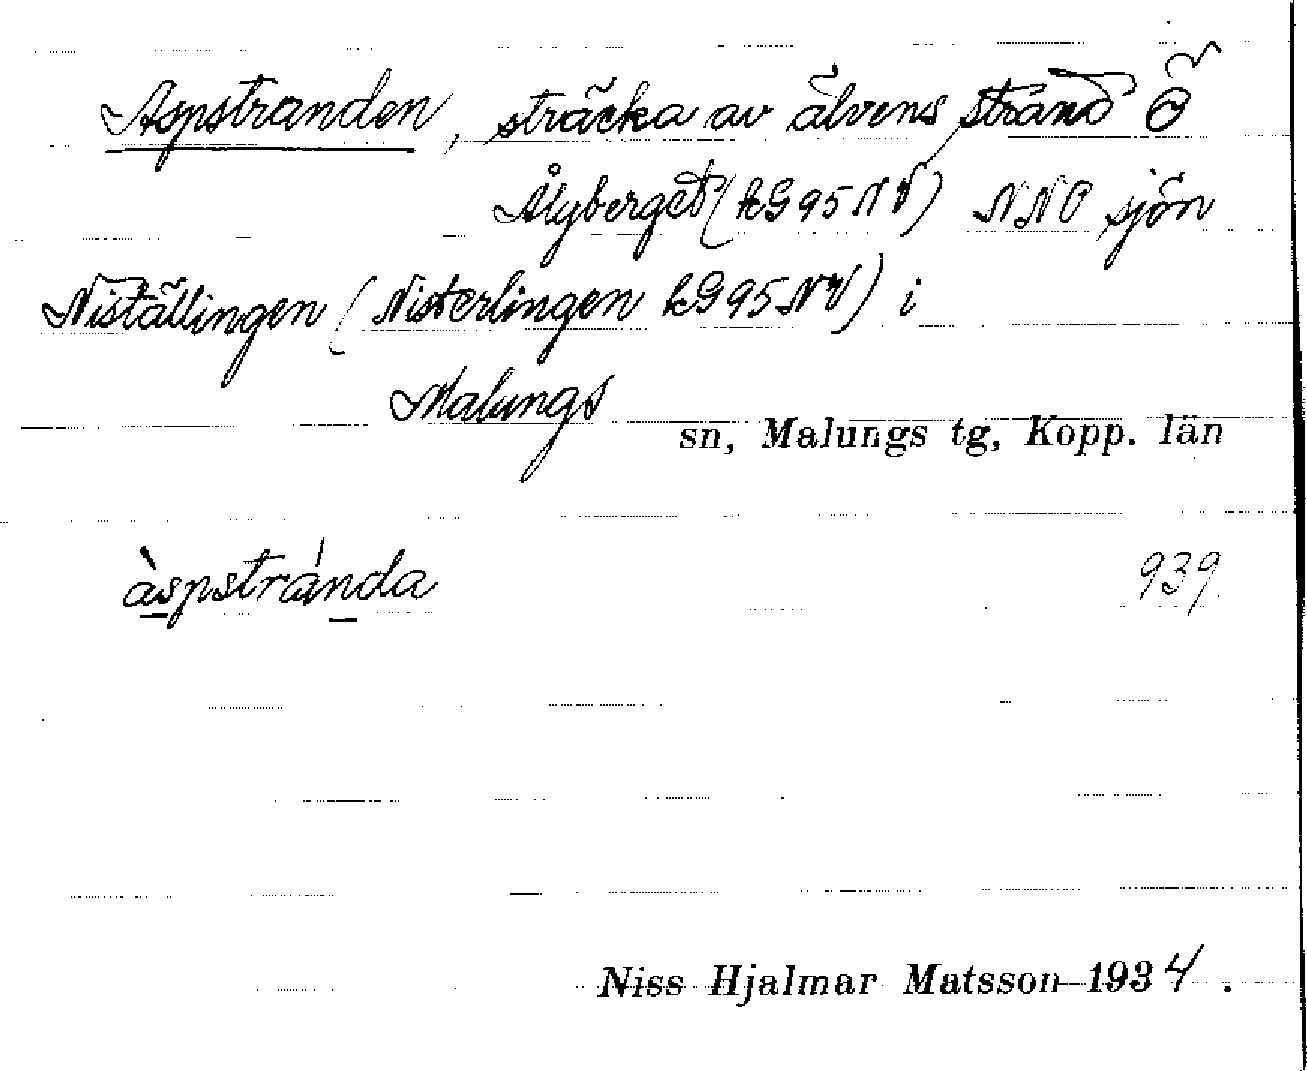 Aspstranden, sträcka av älvens strand Ö
Ålyberget (kG95NV) NNO sjön
Niställingen (Nisterlingen kG95NV) i
Malungs
sn, Malungs tg, Kopp. län
àspstránda 939
Niss Hjalmar Matsson 1934.